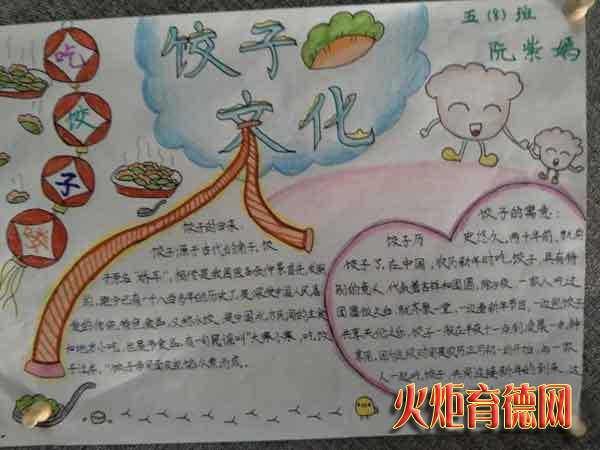 五(8)班
阮紫嫣
饺子
文化
吃
饺
子
饺子的由来:
饺子源于古代的角子。饺
子原名"娇耳",相传是我国医圣张仲景首先发明
的,距今已有一千八百多年的历史了。是深受中国人民喜
爱的传统特色食品,又称水饺,是中国北方民间的主食
和地方小吃,也是年节食品。有一句民谣叫"大寒小寒,吃饺
子过年。"饺子多用面皮包馅水煮而成。
饺子的寓意:
饺子历 史悠久,两千年前,就有
饺子了,在中国,农历新年时吃饺子,具有特
别的意义,代表着吉祥和团圆,除夕夜,一家人吃过
团圆饭之后,就齐聚一堂,一边看新年节目,一边包饺子
共享天伦之乐,饺子一般在半夜十一点到凌晨一点钟
一人一起吃饺子,共同迎接新年的到来,这
火炬育德网